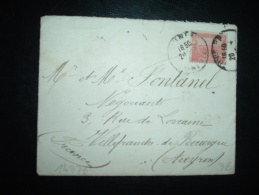 Mr et Me Fontanel
Negociants
3, Rue de Lorraine
Villefranche de Rouergue
(Aveyron)
France